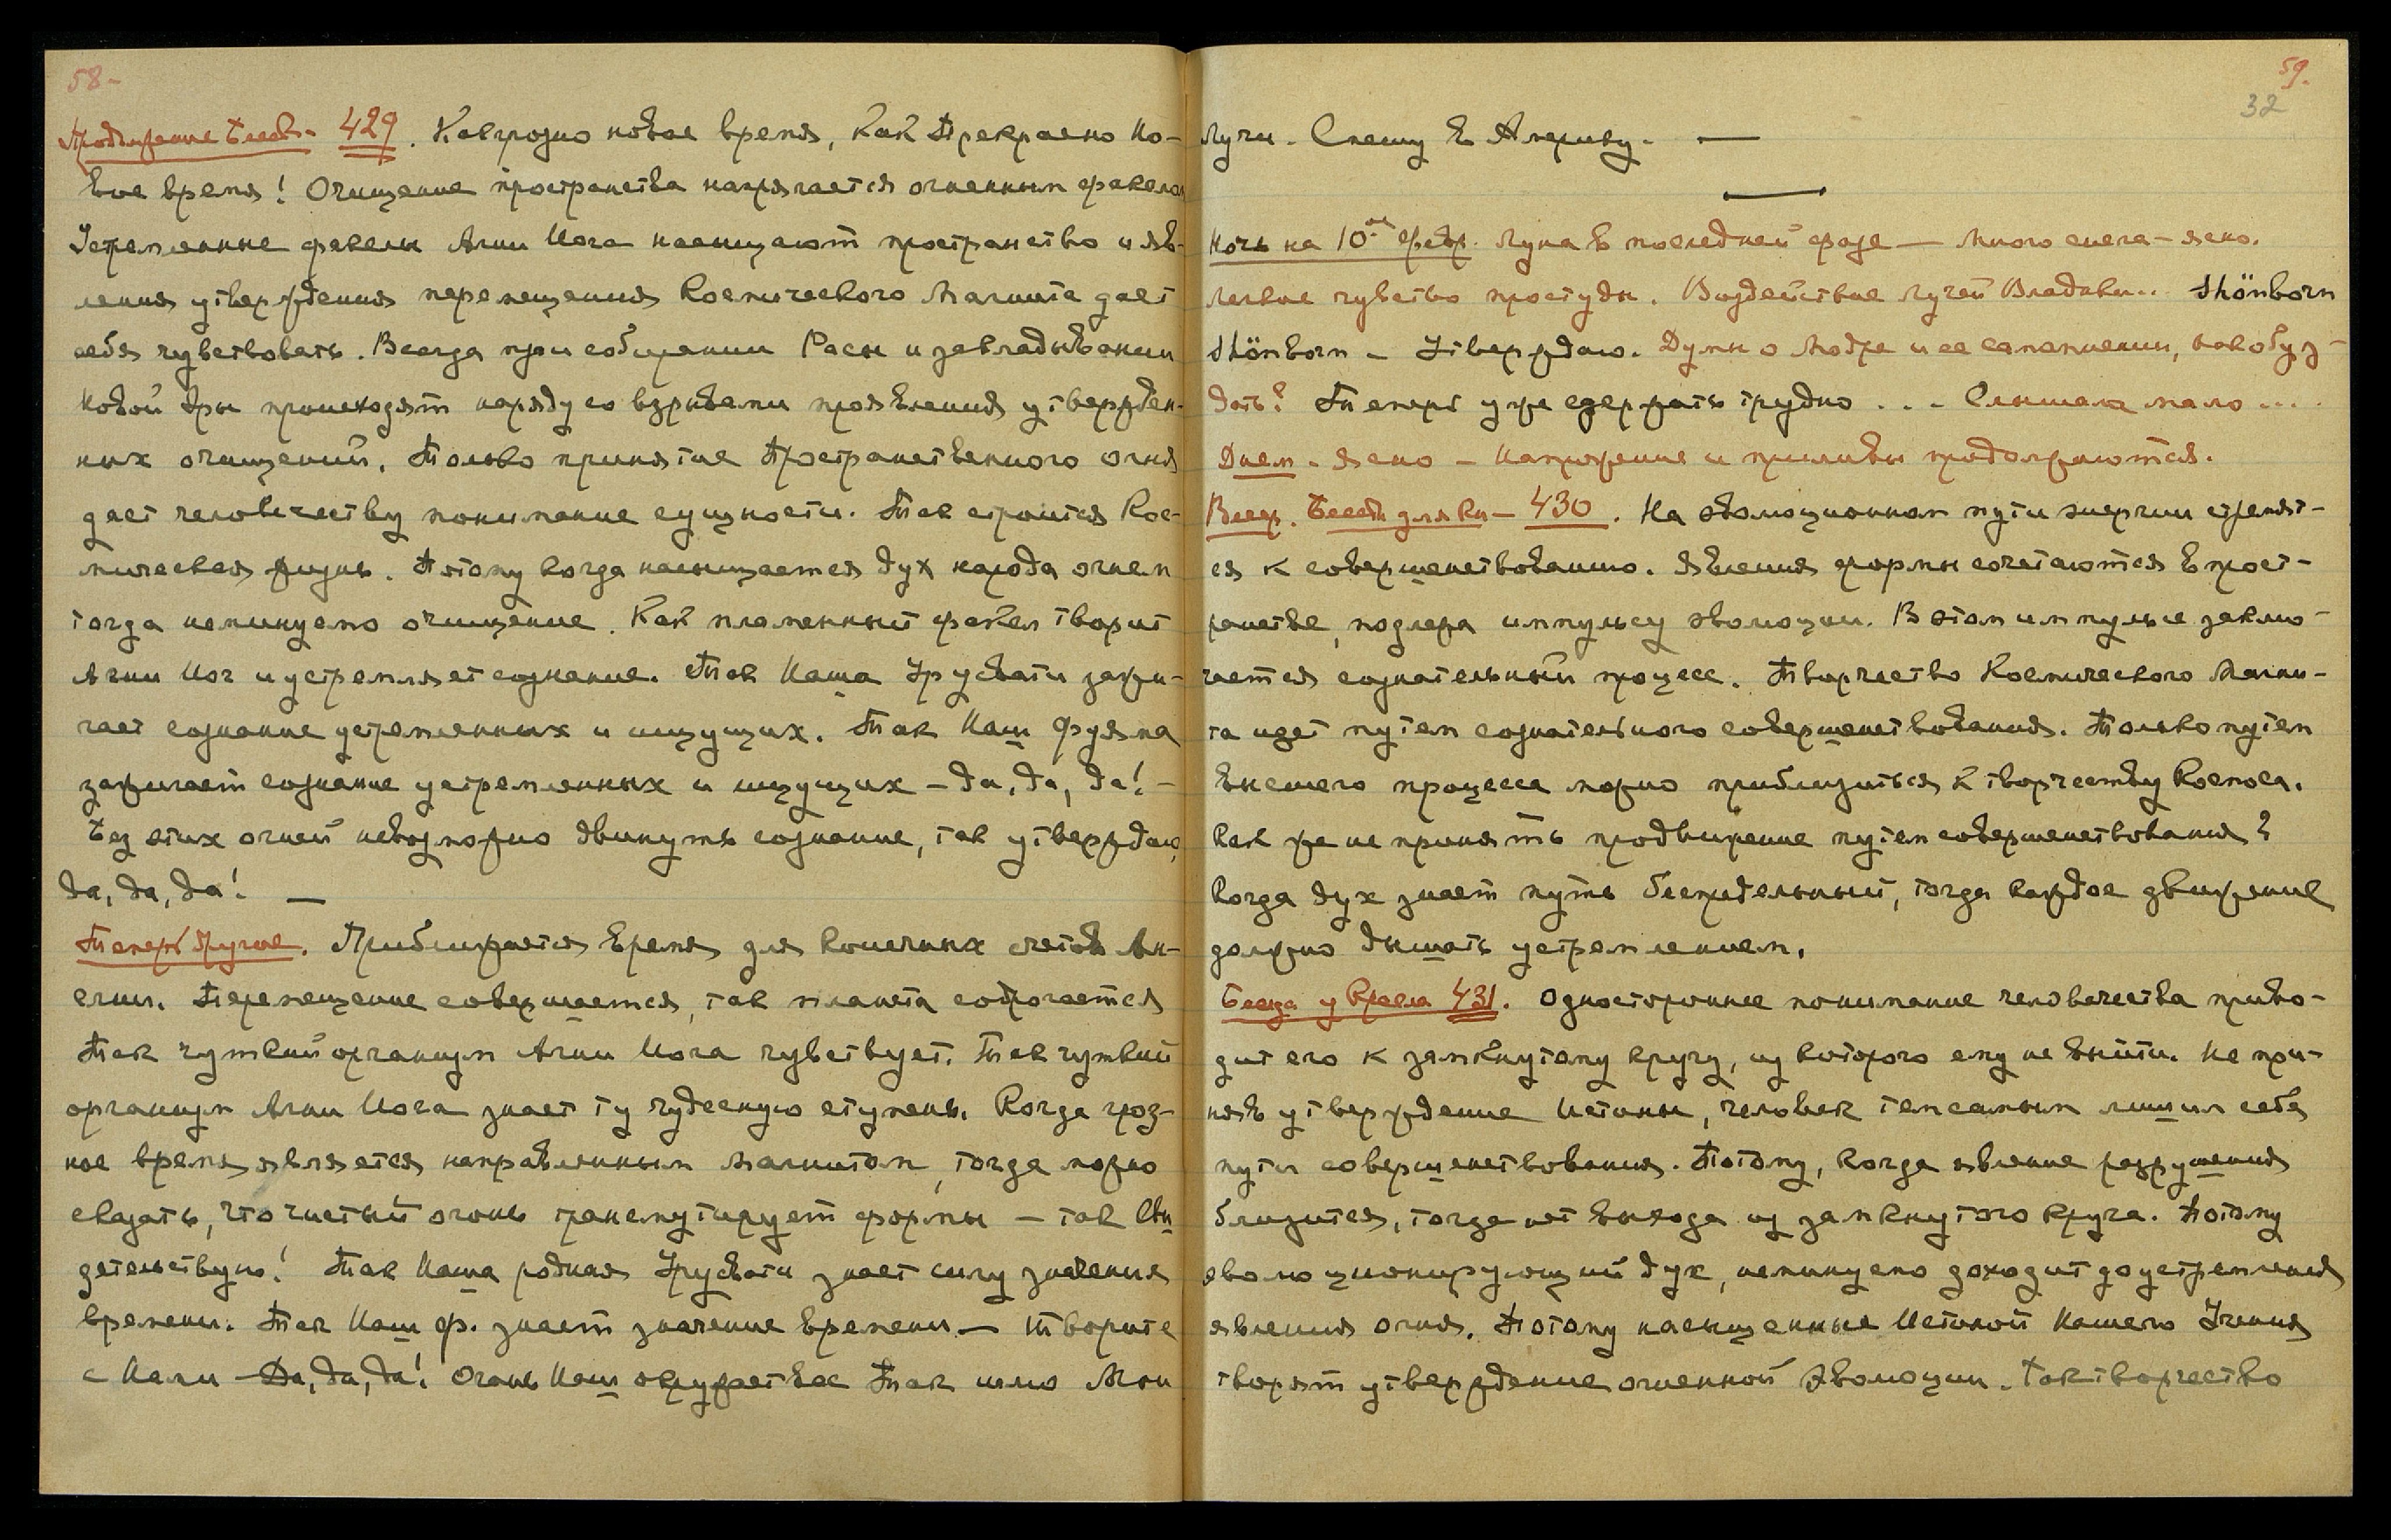 58-
Продолжение Бесед. 429. Как грозно новое время, как Прекрасно Но-
вое время! Очищение пространства напрягается огненным факелом
Устремленные факелы Агни Йога насыщают пространство и яв-
ления утверждения перемещения Космического Магнита дает
себя чувствовать. Всегда при собирании Расы и закладывании
Новой Эры происходят наряду со взрывами проявления утвержден-
ных очищений. Только принятие Пространственного огня
дает человечеству понимание сущности. Так строится Кос-
мическая жизнь. Потому когда насыщается дух народа огнем
тогда неминуемо очищение. Как пламенный факел творит
Агни Йог и устремляет сознание. Так Наша Урусвати зажи-
гает сознание устремленных и ищущих. Так Наш Фуяма
зажигает сознание устремленных и ищущих – да, да, да! –
Без этих огней невозможно двинуть сознание, так утверждаю,
да, да, да! —
Теперь другое. Приближается время для конечных счетов Ан-
глии. Перемещение совершается, так планета содрогается
Так чуткий организм Агни Йога чувствует. Так чуткий
организм Агни Йога знает ту чудесную ступень. Когда гроз-
ное время является направленным Магнитом, тогда можно
сказать, что чистый огонь трансмутирует формы – так Сви
детельствую! Так Наша родная Урусвати знает силу значения
времени. Так Наш Ф. знает значение времени. – Творите
с Нами – Да, да, да! Огонь Наш окружает вас Так шлю Мои
59.
32
Лучи. Спешу в Америку. —
Ночь на 10ое февр. Луна в последней фазе — Много снега – ясно.
Легкое чувство простуды. Воздействие Лучей Владыки.. Shönborn
Shönborn – Утверждаю. Думы о Модре и ее самомнении, как обуз-
дать? Теперь уже сдержать трудно ... Слышала мало....
Днем – ясно – Напряжение и приливы продолжаются.
Вечер. Беседы для Кн – 430. На эволюционном пути энергии стремят-
ся к совершенствованию. Явления формы сочетаются в прост-
ранстве, подлежа импульсу эволюции. В этом импульсе заклю-
чается сознательный процесс. Творчество Космического Магни-
та идет путем сознательного совершенствования. Только путем
высшего процесса можно приблизиться к творчеству Космоса.
Как же не принять продвижение путем совершенствования?
Когда дух знает путь беспредельный, тогда каждое движение
должно дышать устремлением.
Беседа у Кресла 431. Одностороннее понимание человечества приво-
дит его к замкнутому кругу, из которого ему не выйти. Не при-
няв утверждение Истины, человек тем самым лишил себя
пути совершенствования. Потому, когда явление разрушения
близится, тогда нет выхода из замкнутого круга. Потому
эволюционирующий дух, неминуемо доходит до устремления
явления огня. Потому насыщенные Истиной Нашего Учения
творят утверждение огненной Эволюции. Так творчество